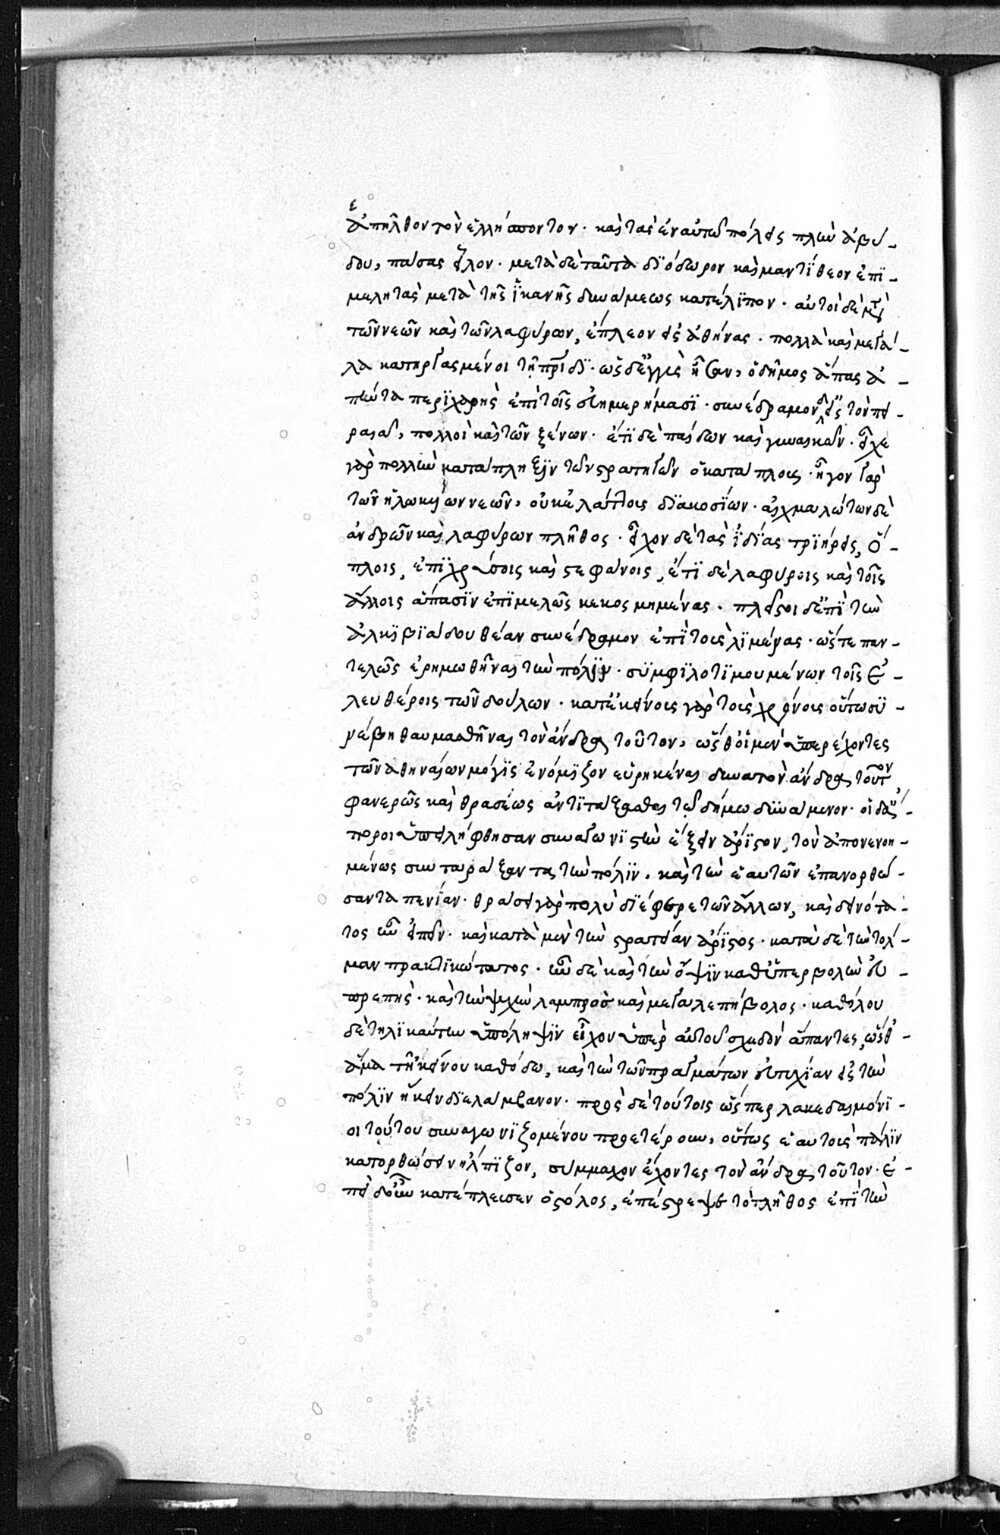 ἐπῆλθον τὸν ἑλλήσποντον· καὶ τὰς ἐν αὐτῷ πόλεις πλὴν ἀβύ-
δου, πάσας εἷλον· μετὰ δὲ ταῦτα διόδωρον καὶ μαντίθεον ἐπι-
μελητὰς μετὰ τῆς ἱκανῆς δυνάμεως κατέλιπον· αὐτοὶ δὲ μετὰ
τῶν νεῶν καὶ τῶν λαφύρων, ἔπλεον εἰς ἀθήνας· πολλὰ καὶ μεγά-
λα κατηργασμένοι τῇ πατρίδι· ὡς δ' ἐγγὺς ἦσαν, ὁ δῆμος ἅπας ἀ-
πήντα περιχαρὴς ἐπὶ τοῖς εὐημερήμασι· συνέδραμον δ' εἰς τὸν πει-
ραιᾶ, πολλοὶ καὶ τῶν ξένων· ἔτι δὲ παίδων καὶ γυναικῶν· εἶχε
γὰρ πολλὴν κατάπληξιν τῶν στρατηγῶν ὁ κατάπλους· ἦγον γὰρ
τῶν ἡλωκυιῶν νεῶν, οὐκ ἐλάττους διακοσίων· αἰχμαλώτων δὲ
ἀνδρῶν καὶ λαφύρων πλῆθος· εἶχον δὲ τὰς ἰδίας τριήρεις, ὅ-
πλοις, ἐπιχρύσοις καὶ στεφάνοις, ἔτι δὲ λαφύροις καὶ τοῖς
ἄλλοις ἅπασιν ἐπιμελῶς κεκοσμημένας· πλεῖστοι δ' ἐπὶ τὴν
ἀλκιβιάδου θέαν συνέδραμον ἐπὶ τοὺς λιμένας· ὥστε παν-
τελῶς ἐρημωθῆναι τὴν πόλιν· συμφιλοτιμουμένων τοῖς ἐ-
λευθέροις τῶν δούλων· κατ' ἐκείνους γὰρ τοὺς χρόνους οὕτω συ-
νέβη θαυμασθῆναι τὸν ἄνδρα τοῦτον, ὥσθ' οἱ μὲν ὑπερέχοντες
τῶν ἀθηναίων μόγις ἐνόμιζον εὑρηκέναι δυνατὸν ἄνδρα τοῦτον
φανερῶς καὶ θρασέως ἀντιτάξασθαι τῷ δήμῳ δυνάμενον· οἱ δ' ἄ-
ποροι ὑπειλήφθησαν συναγωνιστὴν ἕξειν ἄριστον, τὸν ἀπονενοη-
μένως συνταράξαντα τὴν πόλιν, καὶ τὴν ἑαυτῶν ἐπανορθώ-
σαντα πενίαν· θράσει γὰρ πολὺ διέφερε τῶν ἄλλων, καὶ δεινότα-
τος ἦν εἰπεῖν· καὶ κατὰ μὲν τὴν στρατείαν ἄριστος· κατὰ δὲ τὴν τόλ-
μαν πρακτικώτατος· ἦν δὲ καὶ τὴν ὄψιν καθ' ὑπερβολὴν εὐ-
πρεπὴς· καὶ τὴν ψυχὴν λαμπρὸς καὶ μεγαλεπήβολος· καθόλου
δὲ τηλικαύτην ὑπόληψιν εἶχον ὑπὲρ αὐτοῦ σχεδὸν ἅπαντες, ὥσθ'
ἅμα τῇ κείνου καθόδῳ, καὶ τὴν τῶν πραγμάτων εὐτυχίαν εἰς τὴν
πόλιν ἥκειν διελάμβανον· πρὸς δὲ τούτοις ὥσπερ λακεδαιμόνι-
οι τούτου συναγωνιζομένου προετέρουν, οὕτως ἑαυτοὺς πάλιν
κατορθώσειν ἤλπιζον, σύμμαχον ἔχοντες τὸν ἄνδρα τοῦτον· ἐ-
πεὶ δ' οὖν κατέπλευσεν ὁ στόλος, ἐπέστρεψε τὸ πλῆθος ἐπὶ τὴν